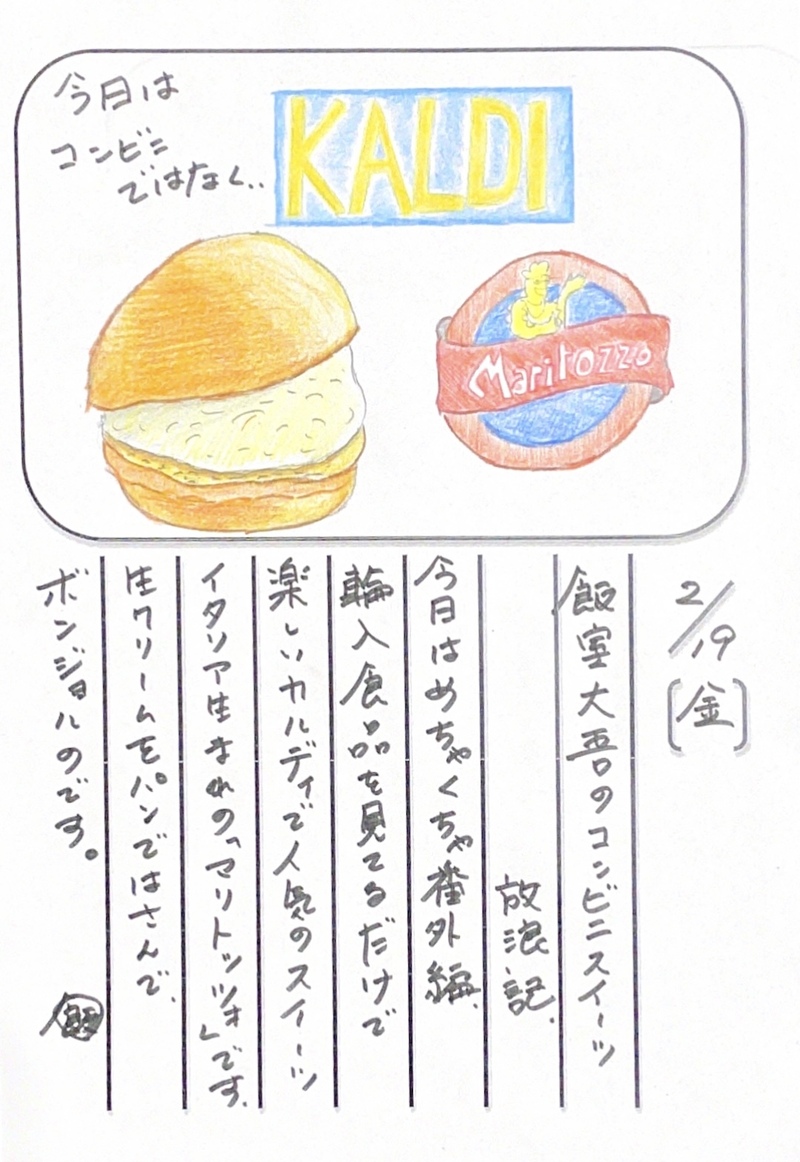 今日は
コンビニ
ではなく..
KALDI
Maritozzo
2/19
[金]
飯室大吾のコンビニスイーツ
放浪記.
今日はめちゃくちゃ番外編.
輸入食品を見てるだけで
楽しいカルディで人気のスイーツ
イタリア生まれの「マリトッツォ」です.
生クリームをパンではさんで.
ボンジョルのです。
飯